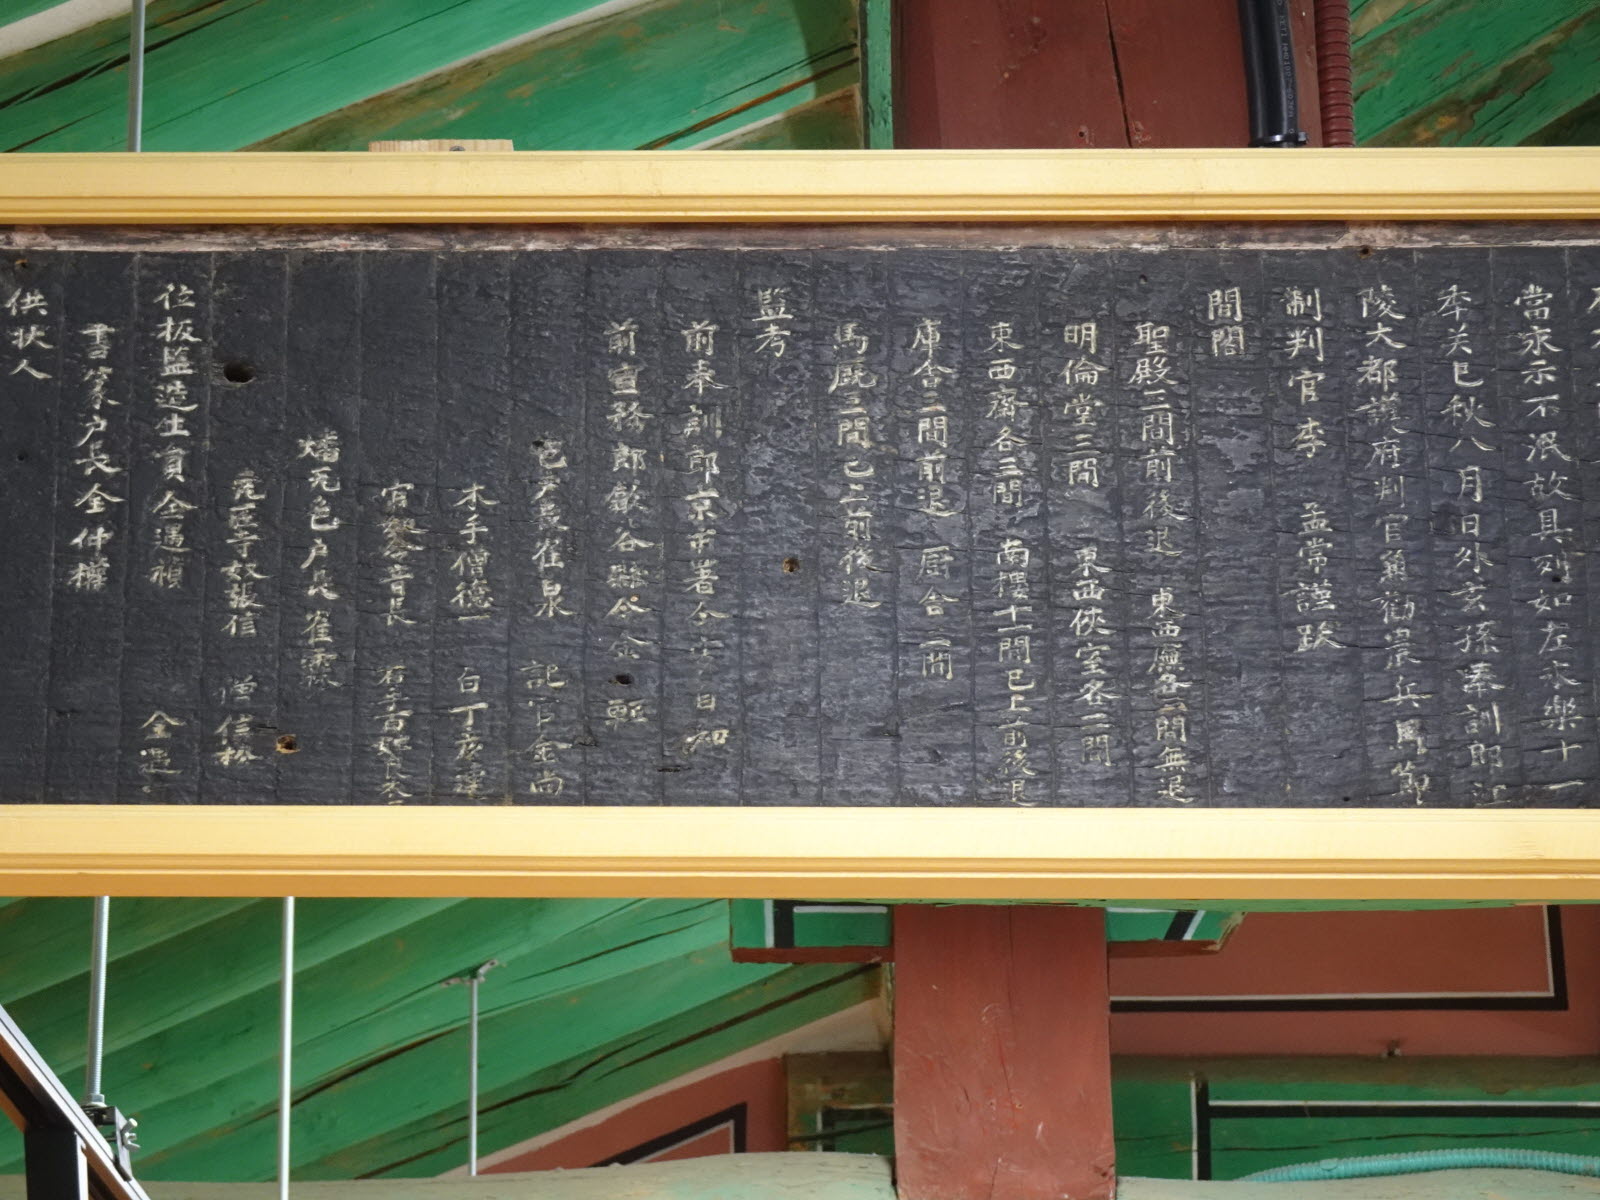 當永示不泯故具列如左永樂十一
年癸巳秋八月日外玄孫奉訓郎江
陵大都護府判官兼勸農兵馬節
制判官李 孟常謹跋
間閣
聖殿三間前後退 東西廡各 間無退
明倫堂三間 東西俠室各二間
東西齋各三間 南樓十一間已上前後退
庫舍二間前退 厨舍二間
馬厩三間已上前後退
監考
前奉訓郎京市署令 自知
前宣務郎歙谷縣令金 輊
邑戶長崔泉 記官金尚
木手僧德一 白丁彦
音長 石手
燔瓦色戶長崔霖
張信 僧信
位板監造生員金遇禎 金遇
書篆戶長全仲權
供狀人